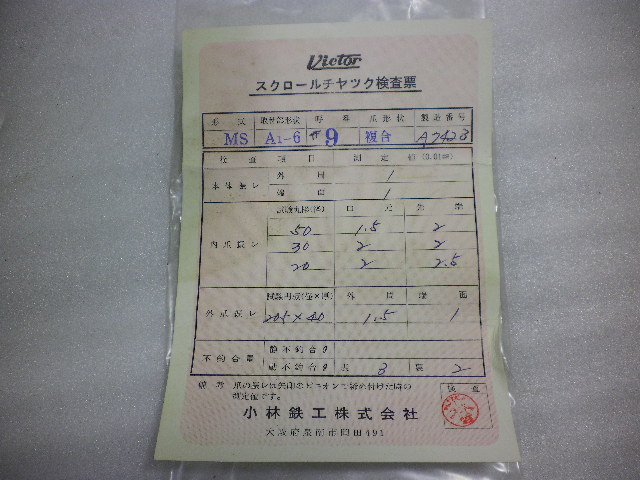 Victor
スクロールチヤツク検査票
形 式 取付部形状 呼 番 爪形状 製造番号
MS A1-6 9 複合 A7423
検 査 項 目 測 定 値 (0.01㎜)
本体振レ 外 周 1
端 面 1
試験丸棒(径) 口 元 先 端
50 1.5 2
内爪振レ 30 2 2
20 2 2.5
試験円板(径×厚) 外 周 端 面
外爪振レ 205×40 1.5 1
不釣合量 静不釣合g
動不釣合g 表 3 裏 2
備 考 爪の振レは矢印のピニオンで締め付けた時の
測定値です。
検 査
小林鉄工株式会社
大阪府泉南市岡田491